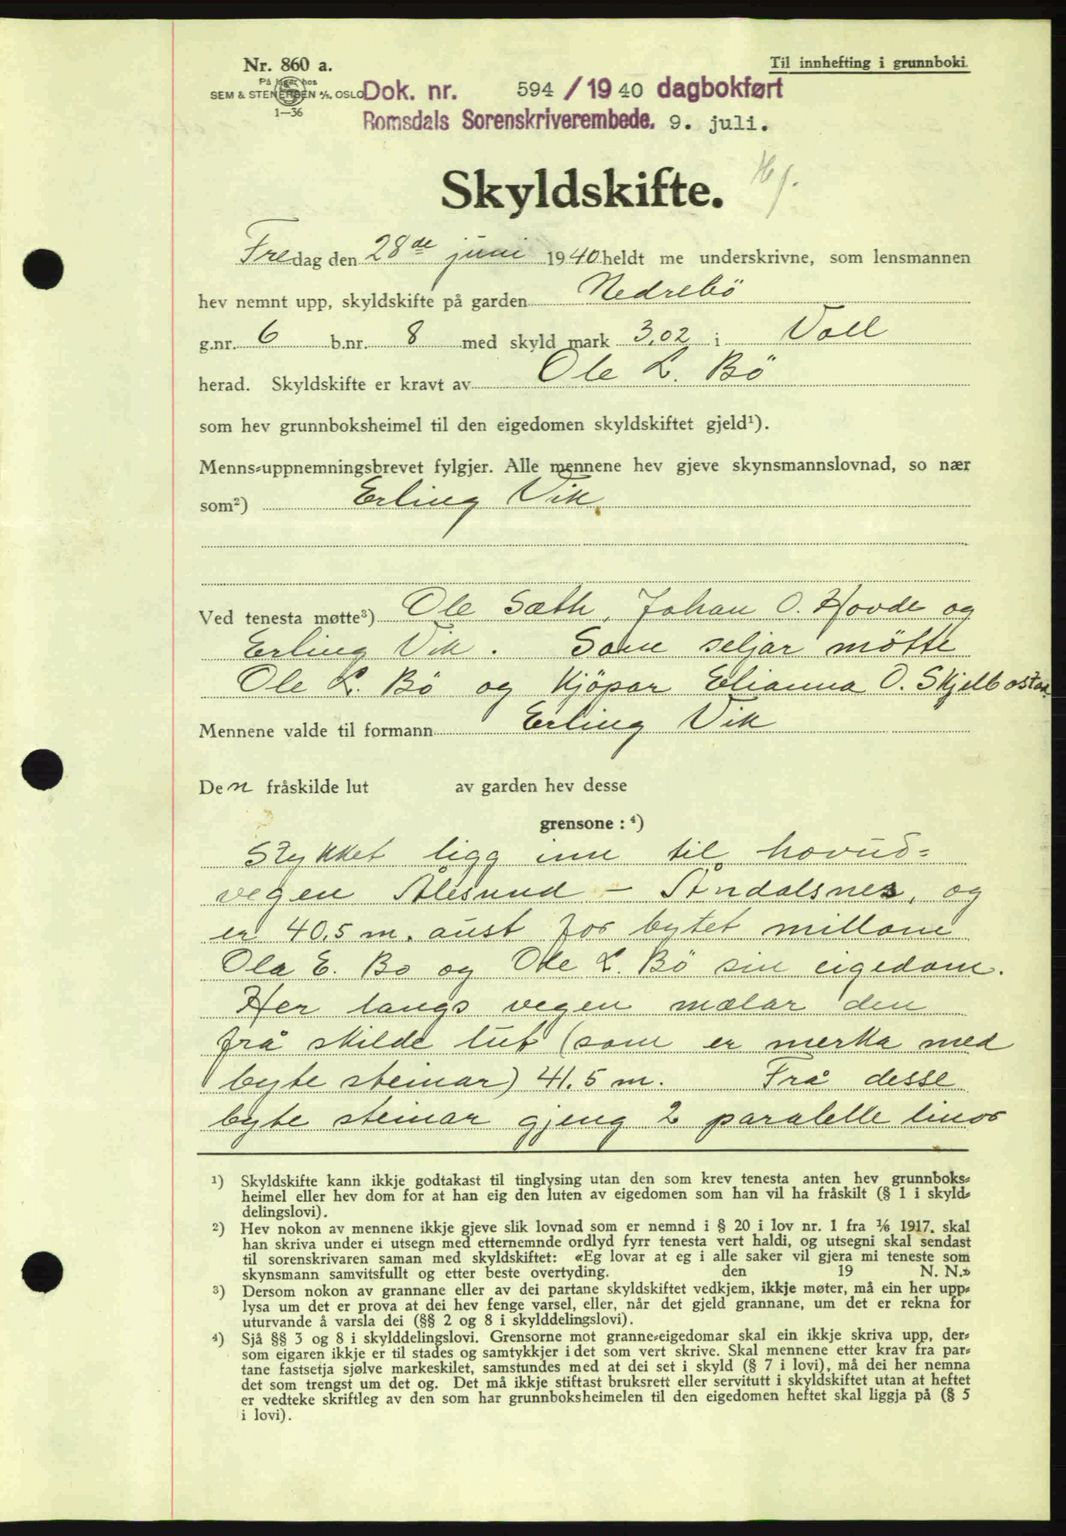 Nr. 860 a.
Til innhefting i grunnboki.
På lager hos
SEM & STENERSEN A/S. OSLO
1—36
Dok. nr. 594 / 1940 dagbokført
Romsdals Sorenskriverembede. 9. juli.
Skyldskifte.
Fredag den 28de juni 1940 heldt me underskrivne, som lensmannen
hev nemnt upp, skyldskifte på garden Nedrebö
g.nr. 6 b.nr. 8 med skyld mark 3,02 i Voll
herad. Skyldskifte er kravt av Ole L. Bö
som hev grunnboksheimel til den eigedomen skyldskiftet gjeld¹).
Menns-uppnemningsbrevet fylgjer. Alle mennene hev gjeve skynsmannslovnad, so nær
som²) Erling Vik.
Ved tenesta møtte³) Ole Sæth, Johan O. Hovde og
Erling Vik. Som seljar mötte
Ole L. Bö og kjöpar Elianna O. Skjelbostad
Mennene valde til formann Erling Vik
Den fråskilde lut av garden hev desse
grensone : ⁴)
Stykket ligg inn til hovud=
vegen Ålesund – Åndalsnes, og
er 40,5 m. aust for bytet millom
Ola E. Bo og Ole L. Bö sin eigedom.
Her langs vegen mælar den
frå skilde lut (som er merka med
byte steinar) 41.5 m. Frå desse
byte steinar gjeng 2 paralelle linor
¹) Skyldskifte kann ikkje godtakast til tinglysing utan den som krev tenesta anten hev grunnboks-
heimel eller hev dom for at han eig den luten av eigedomen som han vil ha fråskilt (§ 1 i skyld-
delingslovi).
²) Hev nokon av mennene ikkje gjeve slik lovnad som er nemnd i § 20 i lov nr. 1 fra 1/6 1917, skal
han skriva under ei utsegn med etternemnde ordlyd fyrr tenesta vert haldi, og utsegni skal sendast
til sorenskrivaren saman med skyldskiftet: «Eg lovar at eg i alle saker vil gjera mi teneste som
skynsmann samvitsfullt og etter beste overtyding. den 19 N. N.»
³) Dersom nokon av grannane eller av dei partane skyldskiftet vedkjem, ikkje møter, må ein her upp-
lysa um det er prova at dei hev fenge varsel, eller, når det gjeld grannane, um det er rekna for
uturvande å varsla dei (§§ 2 og 8 i skylddelingslovi).
⁴) Sjå §§ 3 og 8 i skylddelingslovi. Grensorne mot granne-eigedomar skal ein ikkje skriva upp, der-
som eigaren ikkje er til stades og samtykkjer i det som vert skrive. Skal mennene etter krav fra par-
tane fastsetja sjølve markeskilet, samstundes med at dei set i skyld (§ 7 i lovi), må dei her nemna
det som trengst um det og. Det må ikkje stiftast bruksrett eller servitutt i skyldskiftet utan at heftet
er vedteke skriftleg av den som har grunnboksheimelen til den eigedomen heftet skal liggja på (§ 5
i lovi).